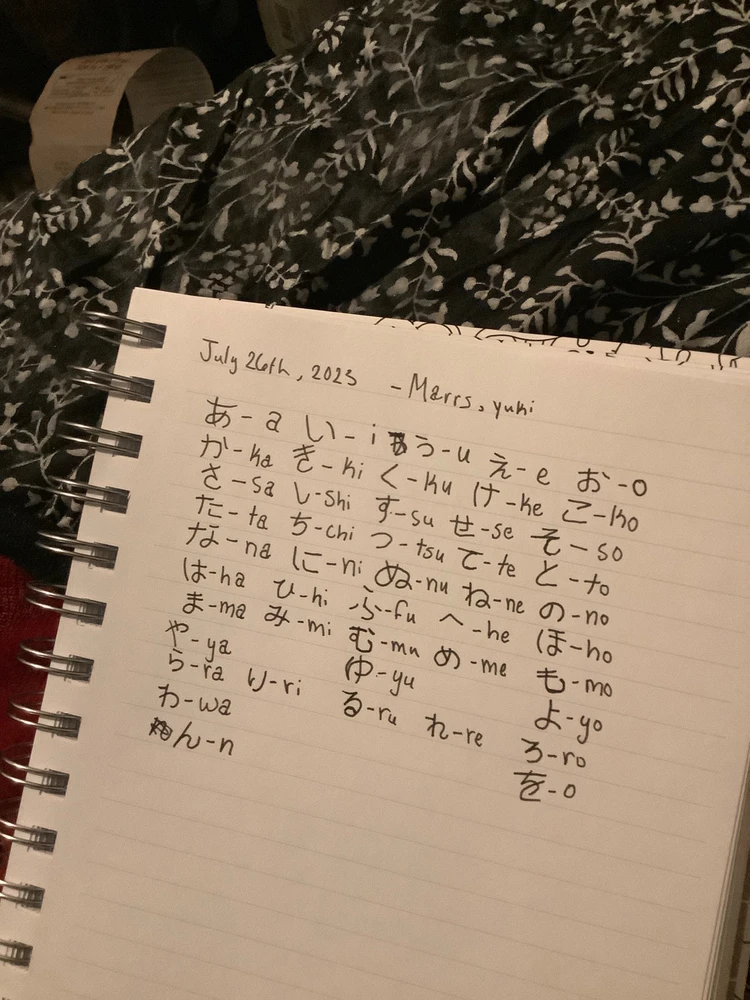 July 26th, 2023 - Marrs, yuki
あ-a い-i う-u え-e お-o
か-ka き-ki く-ku け-ke こ-ko
さ-sa し-shi す-su せ-se そ-so
た-ta ち-chi つ-tsu て-te と-to
な-na に-ni ぬ-nu ね-ne の-no
は-ha ひ-hi ふ-fu へ-he ほ-ho
ま-ma み-mi む-mu め-me も-mo
や-ya ゆ-yu よ-yo
ら-ra り-ri る-ru れ-re ろ-ro
わ-wa を-o
ん-n